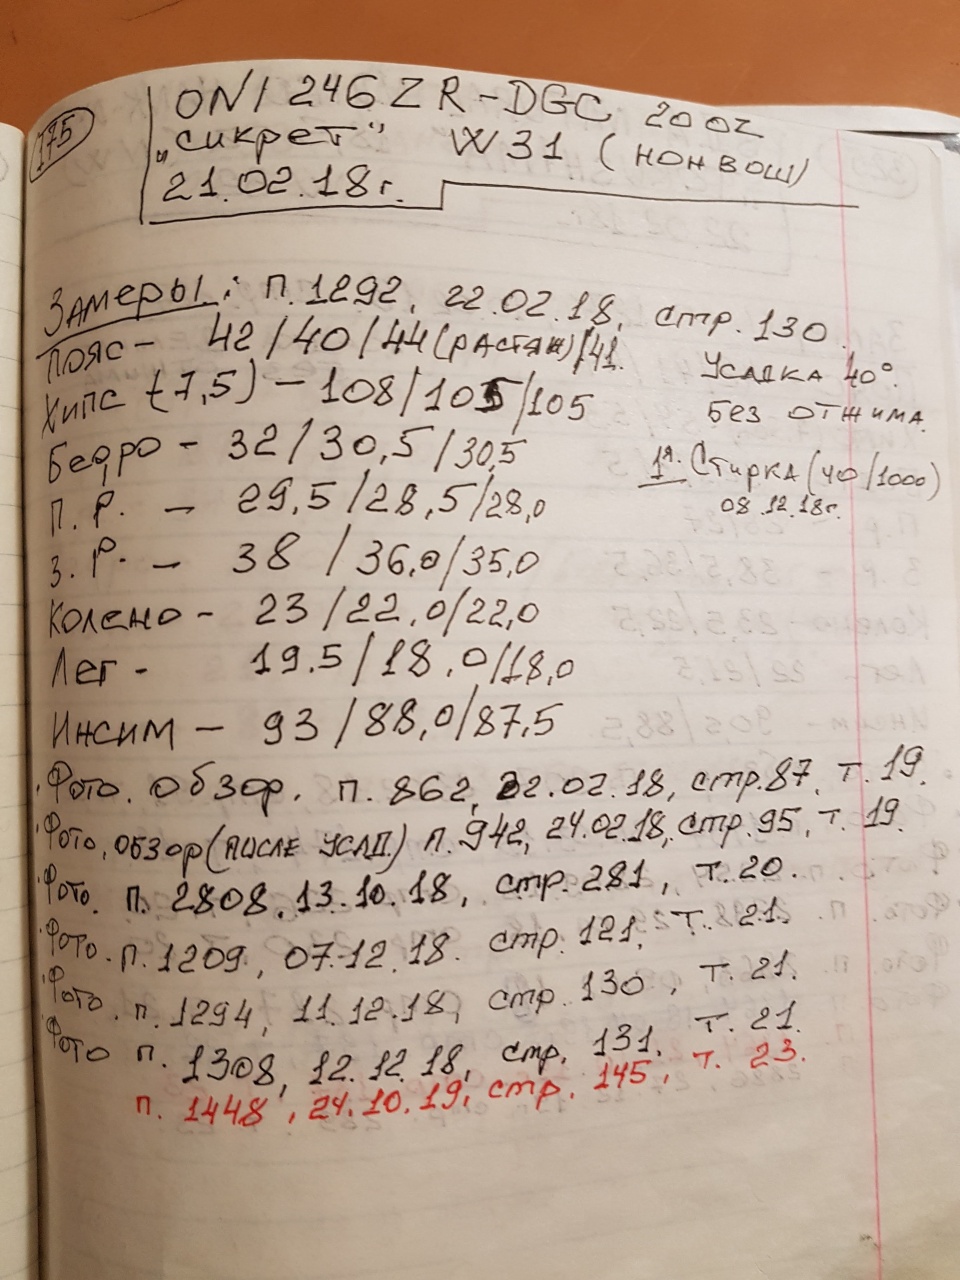 175
ONI 246 ZR-DGC 20OZ
„сикрет" W31 (нон вош)
21.02.18г.
Замеры: п.1292, 22.02.18, стр.130.
Пояс - 42/40/44(растяж)/41.
Усадка 40°.
Хипс (-7,5) - 108/105/105
без отжима.
Бедро - 32/30,5/30,5
1я. Стирка (40/1000)
08.12.18г.
П.Р. - 29,5/28,5/28,0
З.Р. - 38/36,0/35,0
Колено - 23/22,0/22,0
Лег - 19.5/18,0/18,0
Инсим - 93/88,0/87,5
Фото. Обзор. п.862, 22.02.18, стр.87, т.19.
Фото, обзор (после усад.) п.942, 24.02.18, стр.95, т.19.
Фото. п.2808, 13.10.18, стр.281, т.20.
Фото. п.1209, 07.12.18. стр.121, т.21.
Фото. п.1294, 11.12.18, стр.130, т.21.
Фото п.1308, 12.12.18, стр.131. т.21.
п.1448, 24.10.19, стр.145, т.23.